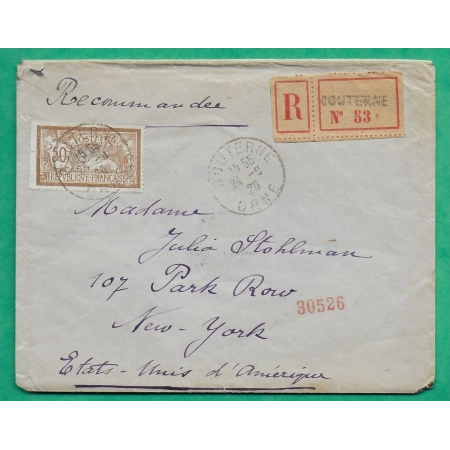 Recommandée
R
COUTERNE
N° 53
50
REPUBLIQUE FRANÇAISE
COUTERNE
15 55
24
20
ORNE
Madame
Julia Stohlman
107 Park Row
New-York
30526
États-Unis d'Amérique